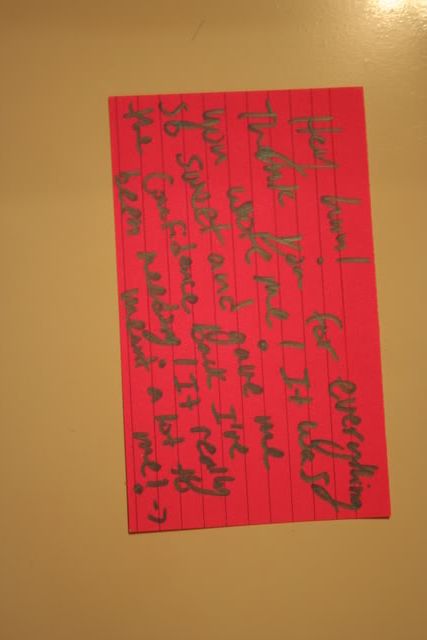 Hey hun!
Thank you for everything
you wrote me! It was
so sweet and gave me
the confidence back I've
been needing! It really
meant a lot to me! →